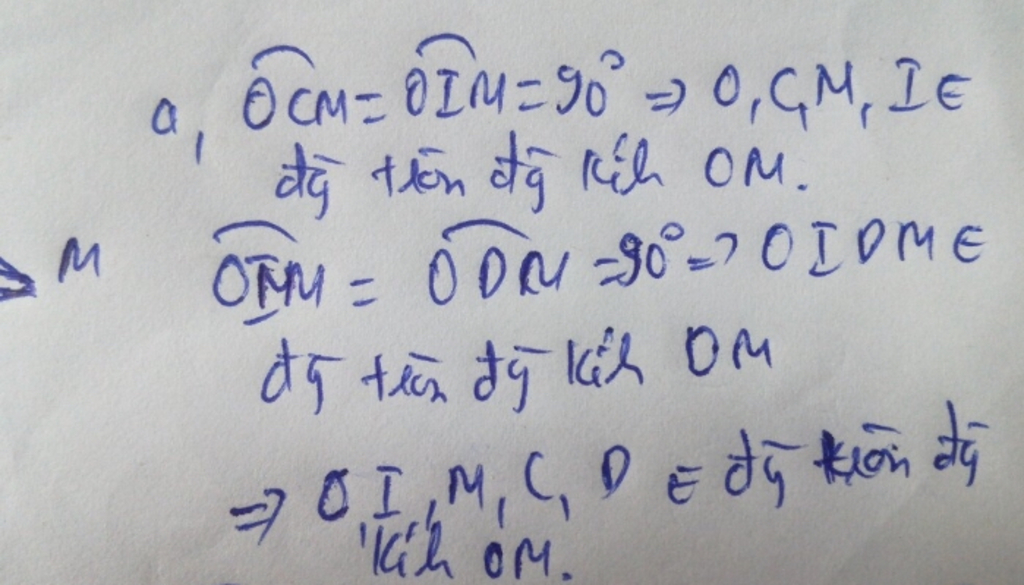 a, OCM = OIM = 90° => O, C, M, I ∈
đg̅ tròn đg̅ kính OM.
M OIM = ODM = 90° => O I D M ∈
đg̅ tròn đg̅ kính OM
=> O, I, M, C, D ∈ đg̅ tròn đg̅
kính OM.